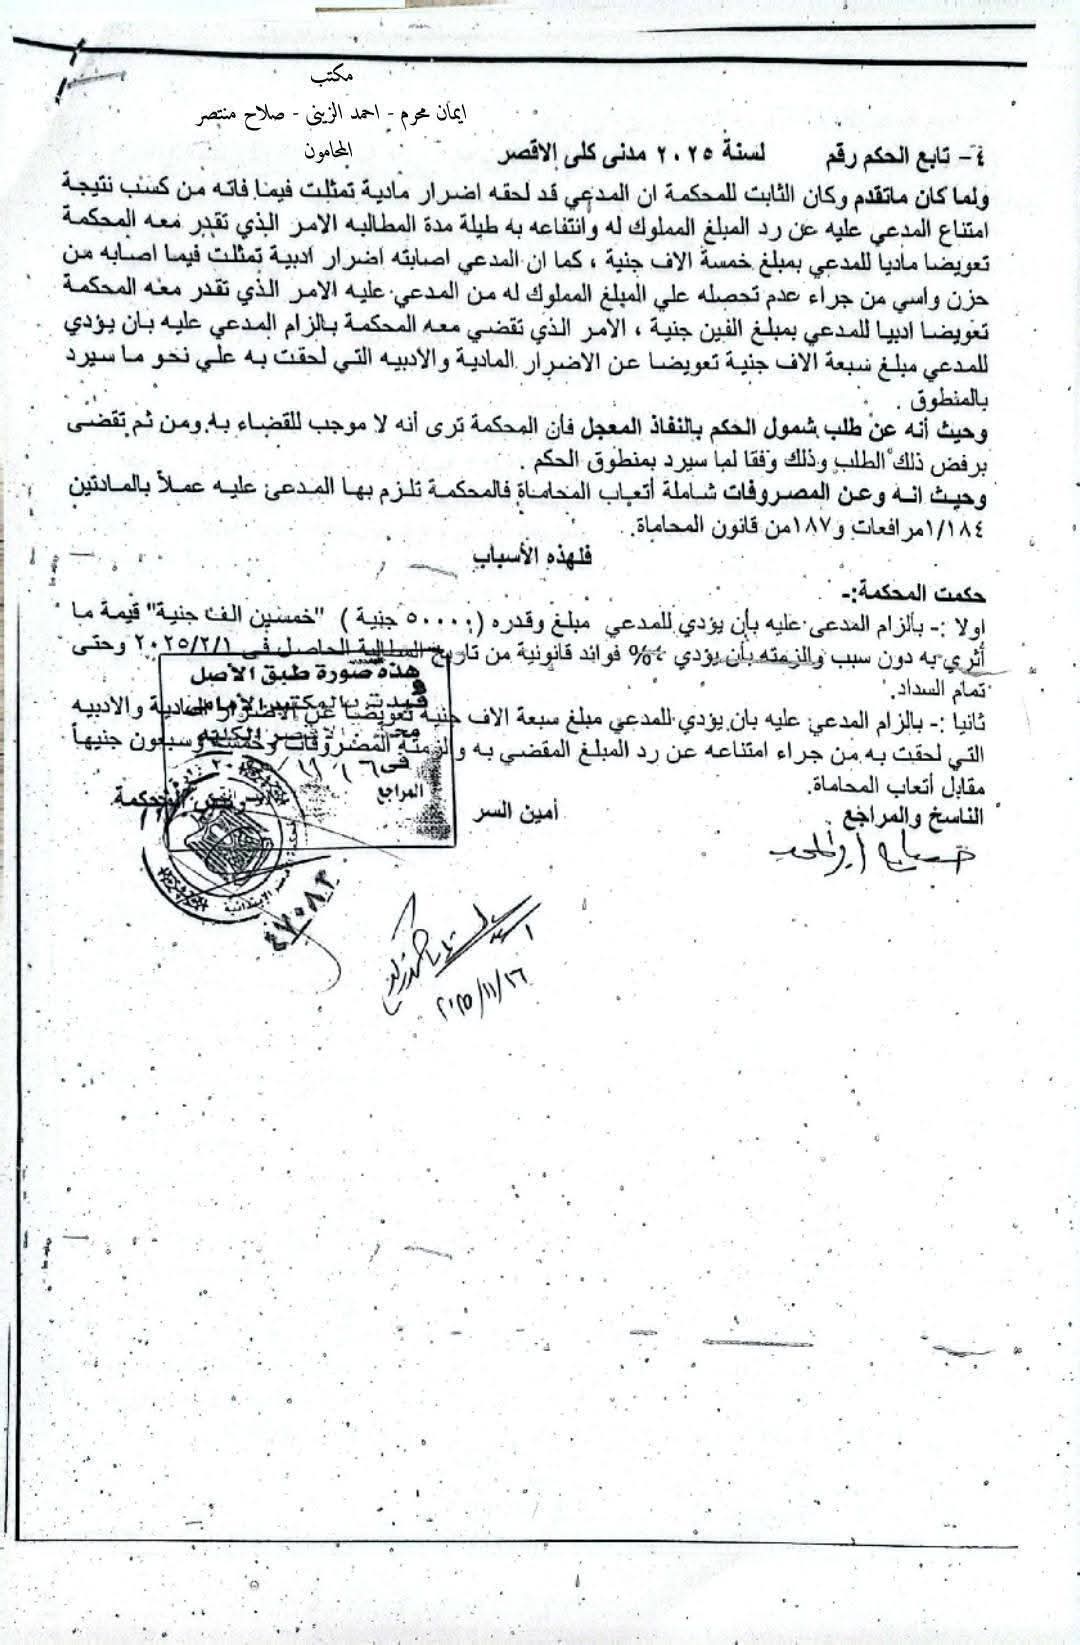 مكتب
ايمان محرم - احمد الزينى - صلاح منتصر
المحامون
٤- تابع الحكم رقم لسنة ٢٠٢٥ مدنى كلى الاقصر
ولما كان ماتقدم وكان الثابت للمحكمة ان المدعي قد لحقه اضرار مادية تمثلت فيما فاته من كسب نتيجة
امتناع المدعي عليه عن رد المبلغ المملوك له وانتفاعه به طيلة مدة المطالبه الامر الذي تقدر معه المحكمة
تعويضا ماديا للمدعي بمبلغ خمسة الاف جنية ، كما ان المدعي اصابته اضرار ادبية تمثلت فيما اصابه من
حزن واسي من جراء عدم تحصله علي المبلغ المملوك له من المدعي عليه الامر الذي تقدر معه المحكمة
تعويضا ادبيا للمدعي بمبلغ الفين جنية ، الامر الذي تقضي معه المحكمة بالزام المدعي عليه بان يؤدي
للمدعي مبلغ سبعة الاف جنية تعويضا عن الاضرار المادية والادبيه التي لحقت به علي نحو ما سيرد
بالمنطوق .
وحيث أنه عن طلب شمول الحكم بالنفاذ المعجل فأن المحكمة ترى أنه لا موجب للقضاء به ومن ثم تقضى
برفض ذلك الطلب وذلك وفقا لما سيرد بمنطوق الحكم .
وحيث انه وعن المصروفات شاملة أتعاب المحاماة فالمحكمة تلزم بها المدعى عليه عملاً بالمادتين
١/١٨٤مرافعات و١٨٧من قانون المحاماة.
فلهذه الأسباب
حكمت المحكمة:-
اولا :- بالزام المدعى عليه بأن يؤدي للمدعي مبلغ وقدره (٥٠٠٠٠ جنية ) "خمسين الف جنية" قيمة ما
أثري به دون سبب والزمته بأن يؤدي ٤% فوائد قانونية من تاريخ المطالبة الحاصل فى ٢٠٢٥/٢/١ وحتى
تمام السداد.
ثانيا :- بالزام المدعي عليه بان يؤدي للمدعي مبلغ سبعة الاف جنية تعويضا عن الاضرار المادية والادبيه
التي لحقت به من جراء امتناعه عن رد المبلغ المقضي به والزمته المصروفات وخمسة وسبعون جنيهاً
مقابل أتعاب المحاماة.
الناسخ والمراجع أمين السر رئيس المحكمة
هذه صورة طبق الأصل
المراجع
٤٧٠٨٣
٢٠٢٥/١١/١٦